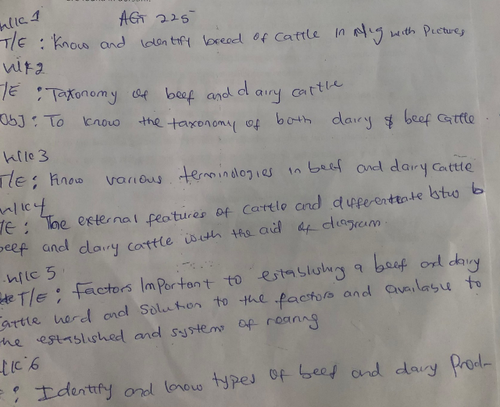 wk 1 AGT 225
T/E : Know and identify breed of cattle in Nig with Pictures
wk 2
T/E : Taxonomy of beef and dairy cattle
Obj : To know the taxonomy of both dairy & beef cattle
wk 3
T/E : Know various terminologies in beef and dairy cattle
wk 4
T/E : The external features of cattle and differentiate btw b
beef and dairy cattle with the aid of diagram
wk 5
T/E : Factors Important to establishing a beef and dairy
cattle herd and solution to the factors and available to
the established and systems of rearing
wk 6
: Identify and know types of beef and dairy Prod-